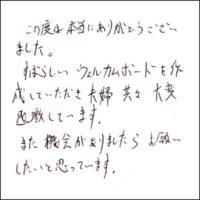 この度は本当にありがとうござい
ました。
すばらしいウェルカムボードを作
成していただき夫婦共々大変
感激しています。
また機会がありましたらお願い
したいと思っています。